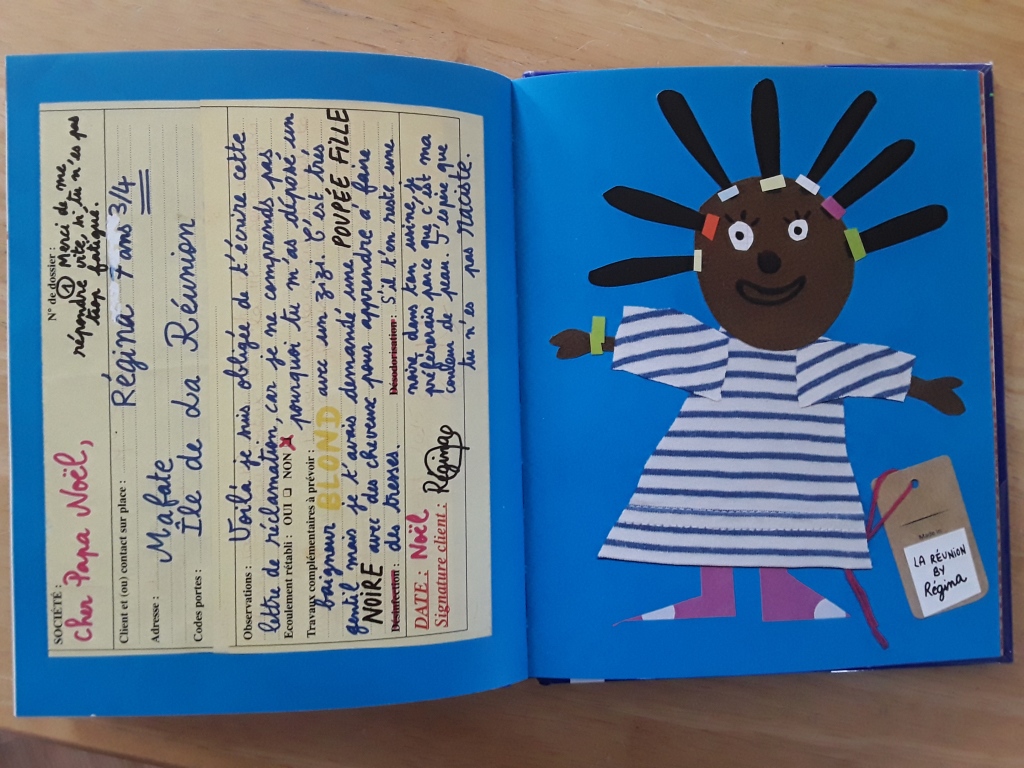 SOCIÉTÉ :
Cher Papa Noël,
N° de dossier :
① Merci de me
répondre vite, si tu n'es pas
trop fatigué.
Client et (ou) contact sur place : Régina 7 ans 3/4
Adresse : Mafate
Île de La Réunion
Codes portes :
Observations : Voilà je suis obligée de t'écrire cette
lettre de réclamation, car je ne comprends pas
Ecoulement rétabli : OUI NON pourquoi tu m'as déposé un
Travaux complémentaires à prévoir :
baigneur BLOND avec un zizi. C'est très
gentil mais je t'avais demandé une POUPÉE FILLE
NOIRE avec des cheveux pour apprendre à faire
Désinfection : des tresses. Désodorisation : S'il t'en reste une
noire dans ton usine, je
préférerais parce que c'est ma
couleur de peau. J'espère que
tu n'es pas raciste.
DATE : Noël
Signature client : Régina
Made in
LA RÉUNION
BY
Régina